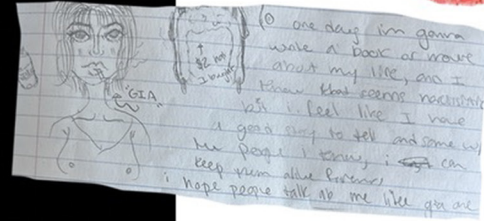 "GIA"
$2 hat
I bought
one day im gonna
write a book or movie
about my life, and I
know that seems narcissistic
but i feel like I have
a good story to tell and some how
the people I know, i can
keep them alive forever
i hope people talk ab me like you are